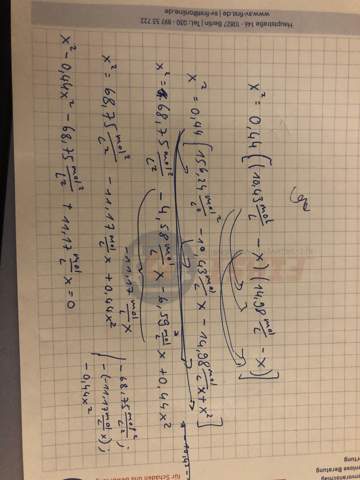 Hauptstraße 146 · 10827 Berlin | Tel.: 030 - 897 55 722
www.av-first.de | se@av-firstonline.de
x² = 0,44 [(10,43 mol/L - x)(14,98 mol/L - x)]
x² = 0,44 [156,24 mol²/L² - 10,43 mol/L x - 14,98 mol/L x + x²]
x² = 68,75 mol²/L² - 4,58 mol/L x - 6,59 mol/L x + 0,44x²
11,17 mol/L x
x² = 68,75 mol²/L² - 11,17 mol/L x + 0,44x² | - 68,75 mol²/L² ;
- (-11,17 mol/L x) ;
- 0,44x²
x² - 0,44x² - 68,75 mol²/L² + 11,17 mol/L x = 0
für Schäden und